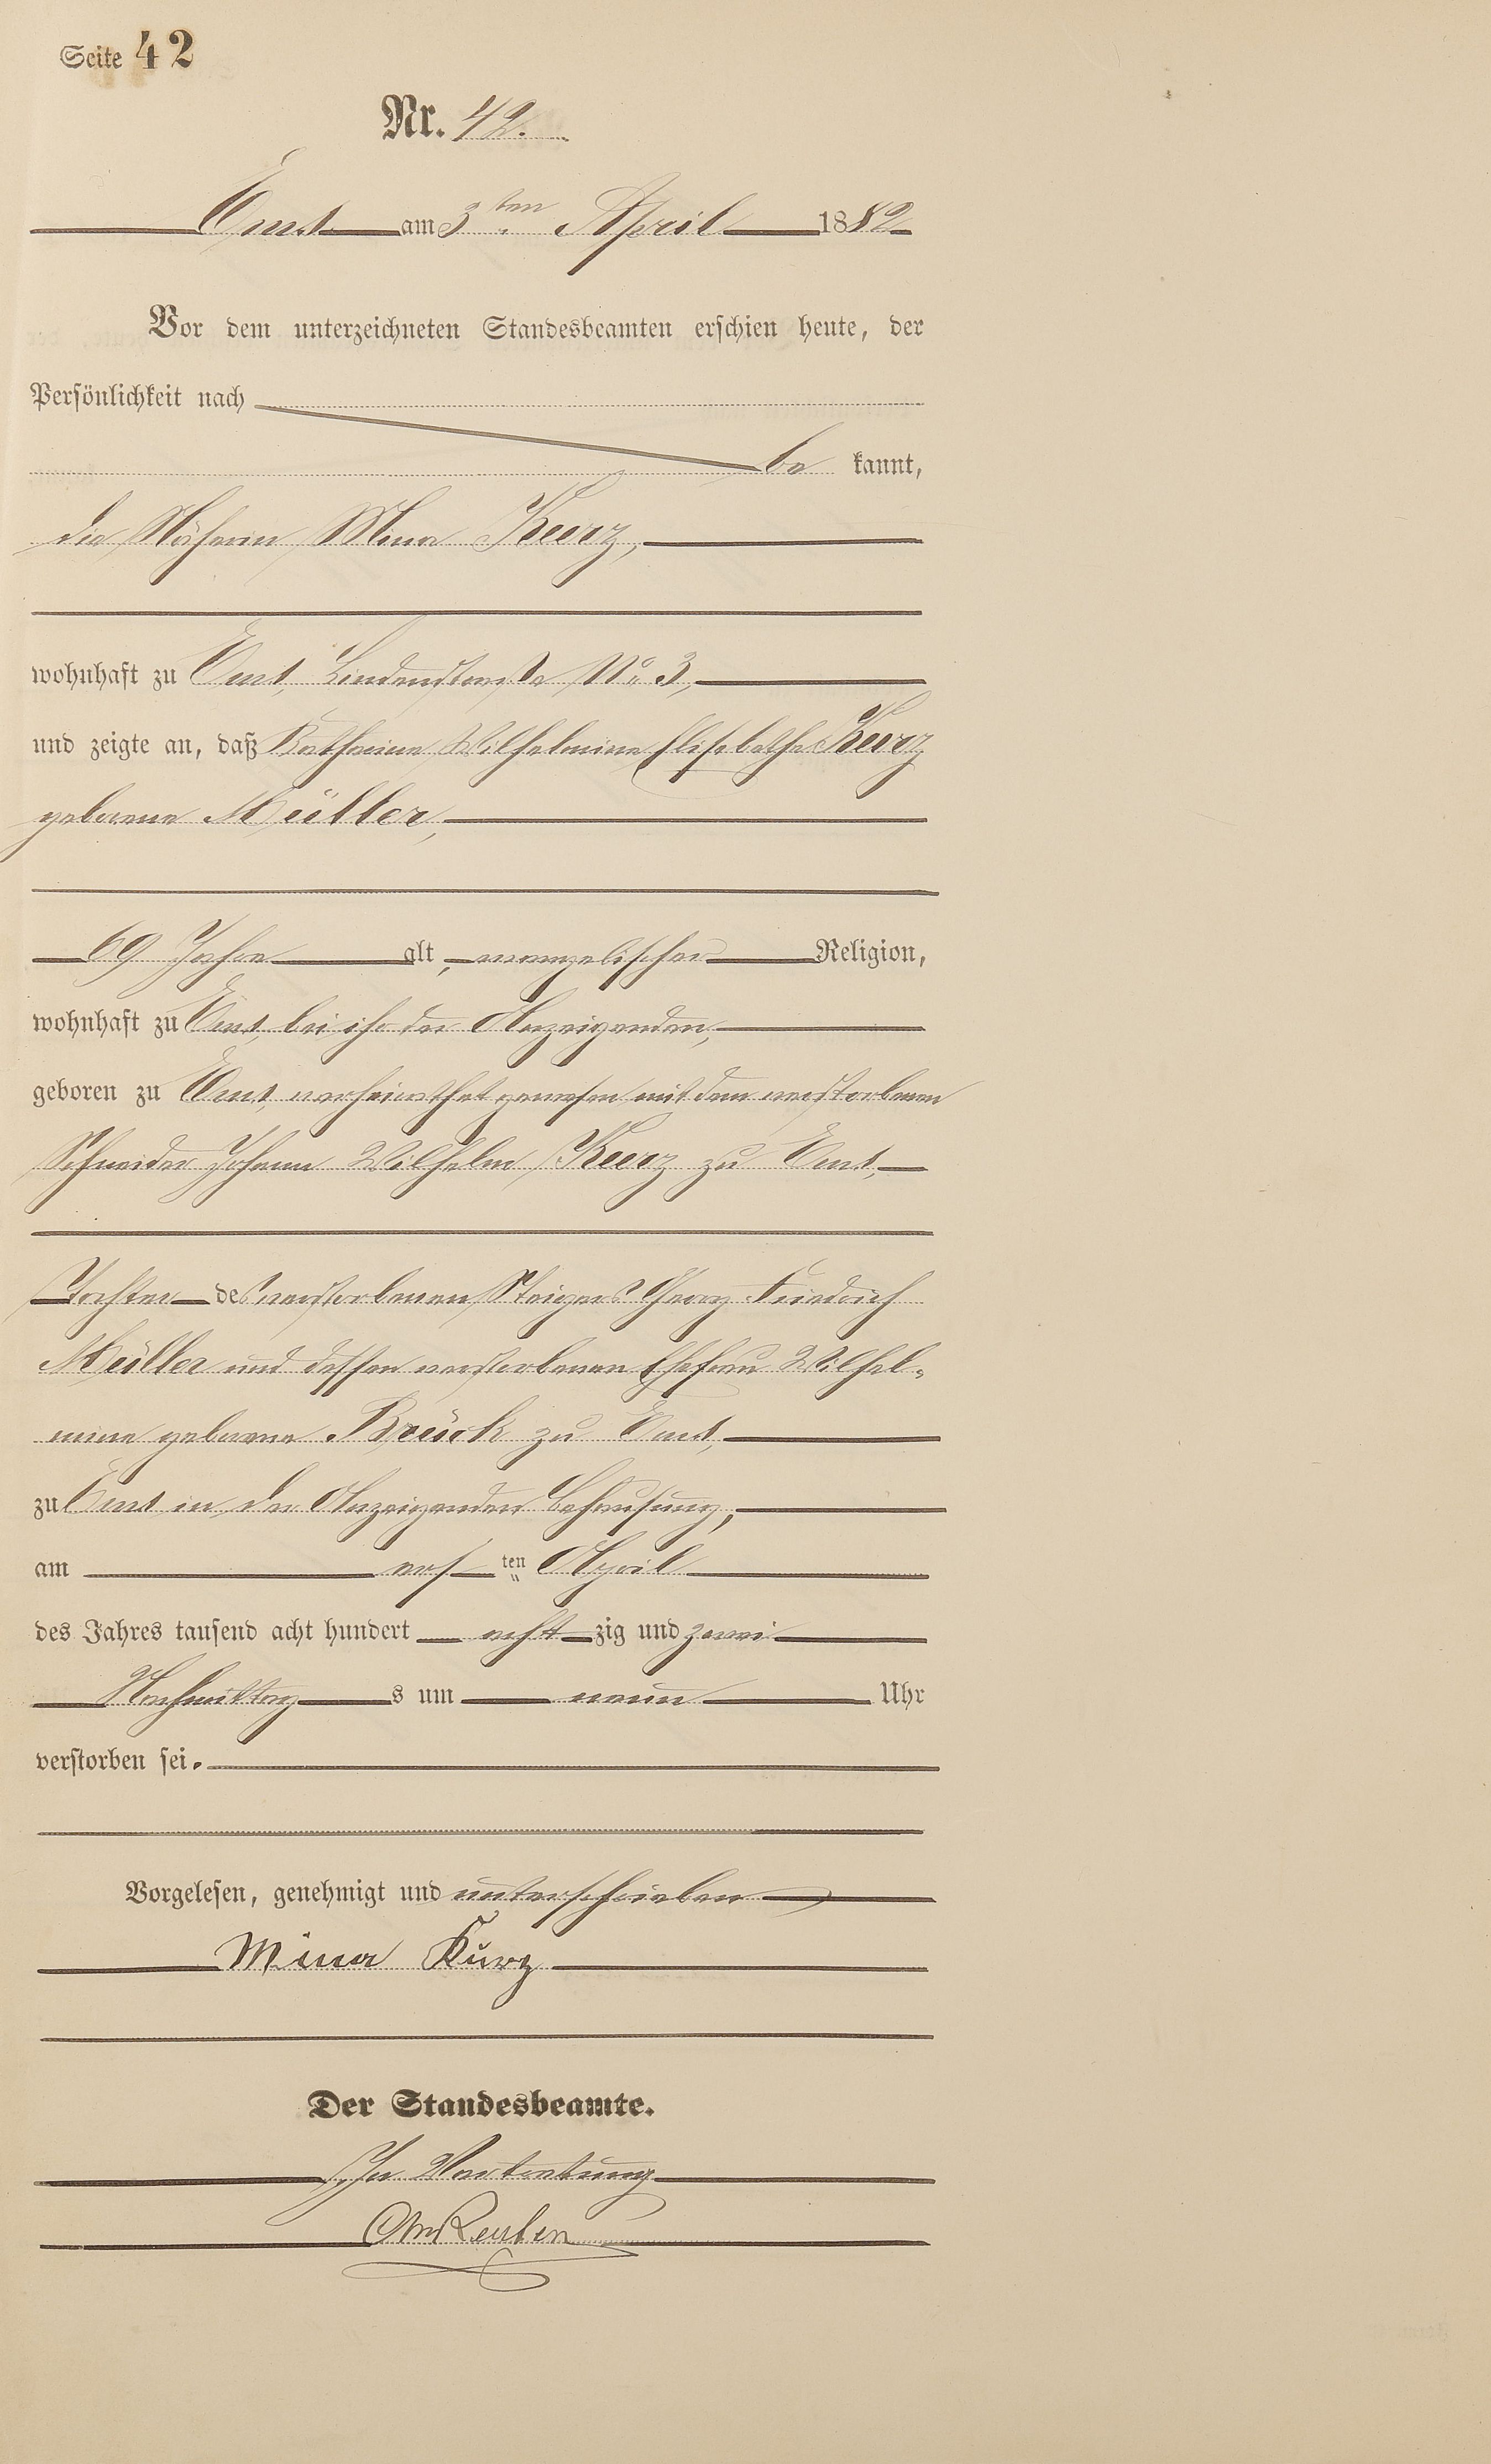 Seite 42
Nr. 42.
Ems am 3ten April 1882
Vor dem unterzeichneten Standesbeamten erschien heute, der
Persönlichkeit nach
be kannt,
die Näherin Mina Kurz,
wohnhaft zu Ems, Lindenstraße No. 3,
und zeigte an, daß Katharine Wilhelmine Elisabethe Kurz
geborene Müller,
69 Jahre alt, evangelischer Religion,
wohnhaft zu Ems, bei ihr der Anzeigenden,
geboren zu Ems, verheirathet gewesen mit dem verstorbenen
Schneider Johann Wilhelm Kurz zu Ems,
Tochter des verstorbenen Steigers Georg Friedrich
Müller und dessen verstorbenen Ehefrau Wilhel-
mine geborene Brück zu Ems,
zu Ems in der Anzeigenden Behausung,
am ersten April
des Jahres tausend acht hundert achtzig und zwei
Nachmittags um neun Uhr
verstorben sei.
Vorgelesen, genehmigt und unterschrieben
Mina Kurz
Der Standesbeamte.
In Vertretung